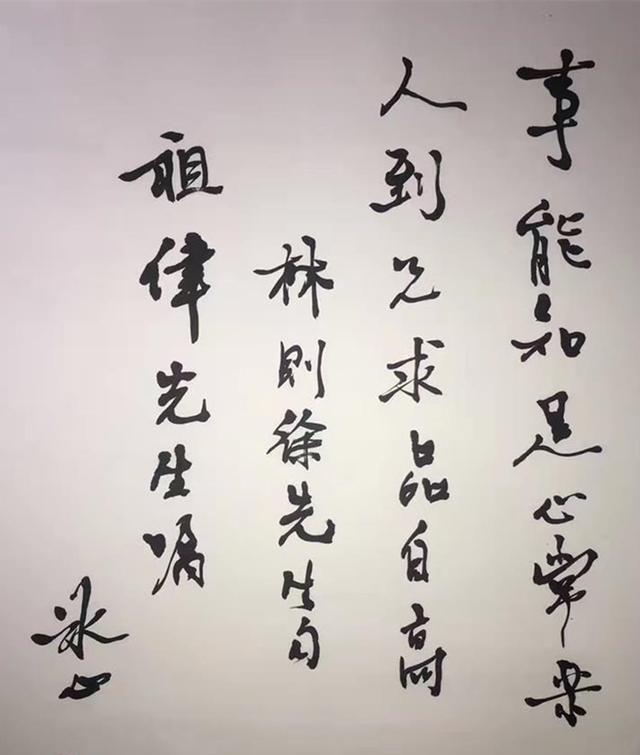 事能知足心常樂
人到无求品自高
林则徐先生句
祖偉先生嘱
冰心